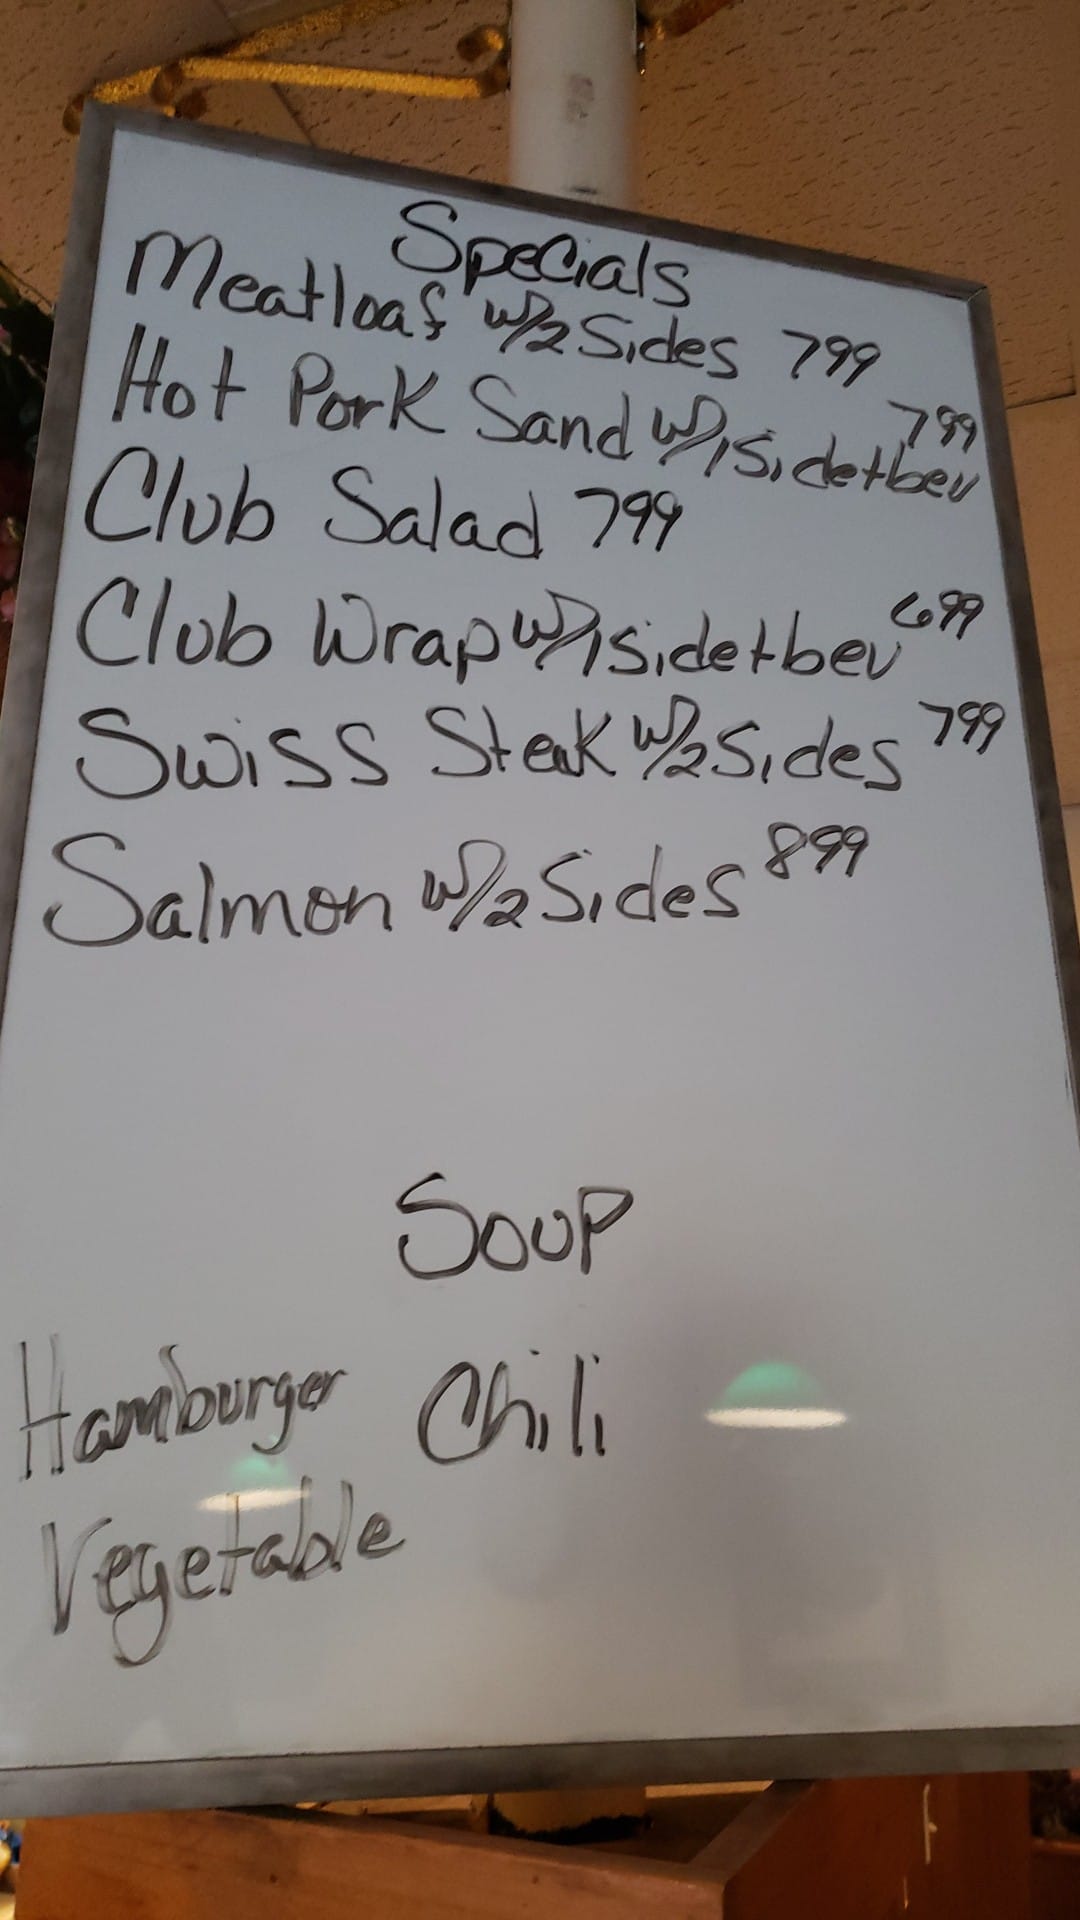 Specials
Meatloaf w/2 Sides 799
Hot Pork Sand w/1 Side+bev 799
Club Salad 799
Club Wrap w/1 Side+bev 699
Swiss Steak w/2 Sides 799
Salmon w/2 Sides 899
Soup
Hamburger Chili
Vegetable